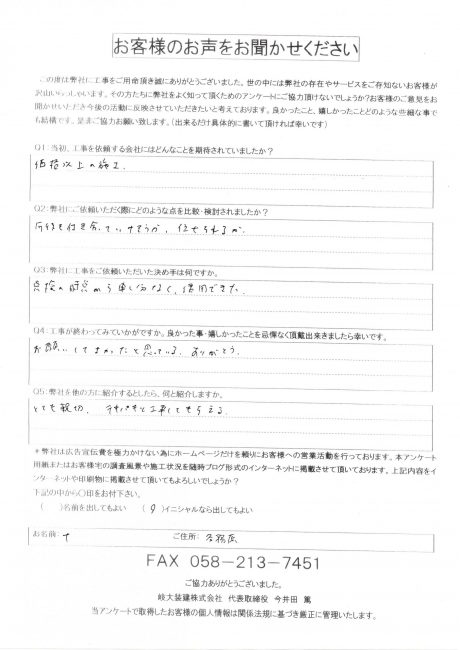 お客様のお声をお聞かせください
この度は弊社に工事をご用命頂き誠にありがとうございました。世の中には弊社の存在やサービスをご存知ないお客様が
沢山いらっしゃいます。その方たちに弊社をよく知って頂くためのアンケートにご協力頂けないでしょうか?お客様のご意見をお
聞かせいただき今後の活動に反映させていただきたいと考えております。良かったこと、嬉しかったことどのような些細な事で
も結構です。是非ご協力お願い致します。(出来るだけ具体的に書いて頂ければ幸いです)
Q1:当初、工事を依頼する会社にはどんなことを期待されていましたか?
価格以上の施工.
Q2:弊社にご依頼いただく際にどのような点を比較・検討されましたか?
何年も付き合っていけそうか、任せられるか.
Q3:弊社に工事をご依頼いただいた決め手は何ですか。
点検の時点から申し分なく、信用できた.
Q4:工事が終わってみていかがですか。良かった事・嬉しかったことを忌憚なく頂戴出来きましたら幸いです。
お願いしてよかったと思っている. ありがとう.
Q5:弊社を他の方に紹介するとしたら、何と紹介しますか。
とても親切. テキパキと工事してもらえる.
*弊社は広告宣伝費を極力かけない為にホームページだけを頼りにお客様への営業活動を行っております。本アンケート
用紙またはお客様宅の調査風景や施工状況を随時ブログ形式のインターネットに掲載させて頂いております。上記内容をイ
ンターネットや印刷物に掲載させて頂いてもよろしいでしょうか?
下記の中から○印をお付下さい。
( )名前を出してもよい ( )イニシャルなら出してもよい
お名前: ご住所: 各務原
FAX 058-213-7451
ご協力ありがとうございました。
岐大装建株式会社 代表取締役 今井田 篤
当アンケートで取得したお客様の個人情報は関係法規に基づき厳正に管理いたします。